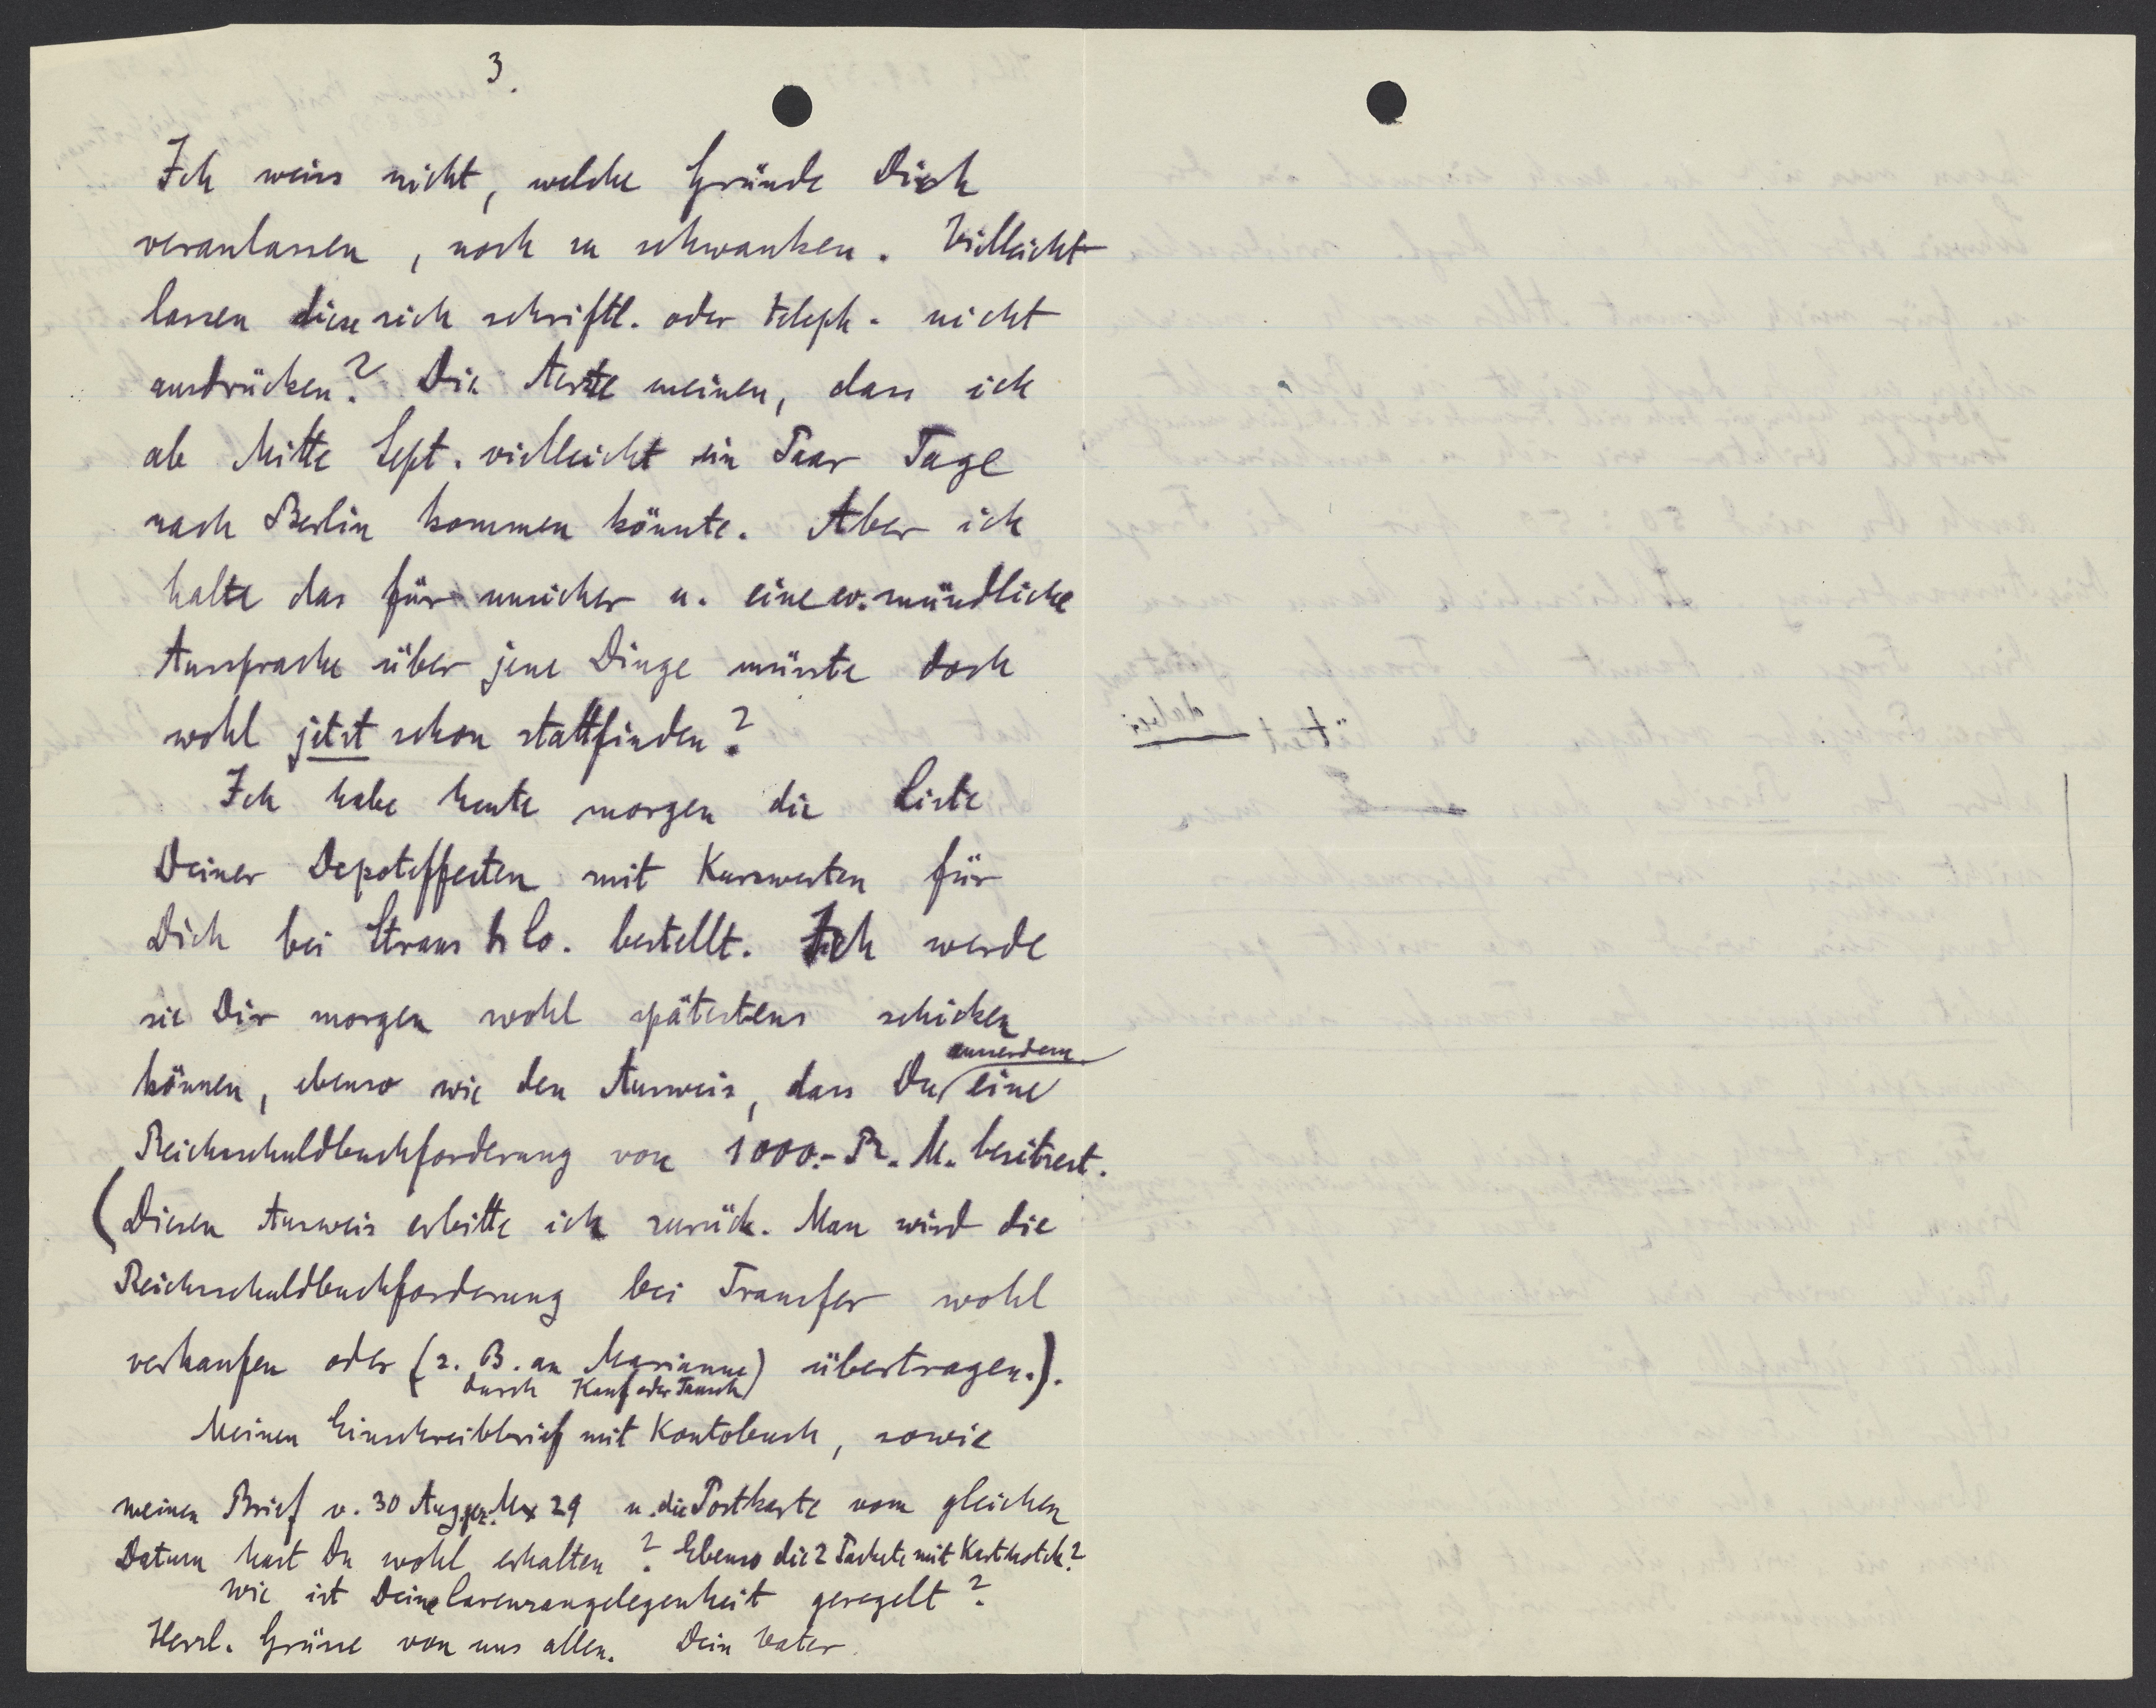 3.
Ich weiss nicht, welche Gründe Dich
veranlassen, noch zu schwanken. Vielleicht
lassen diese sich schriftl. oder teleph. nicht
ausdrücken? Die Aerzte meinen, dass ich
ab Mitte Sept. vielleicht ein Paar Tage
nach Berlin kommen könnte. Aber ich
halte das für unsicher u. eine ev. mündliche
Aussprache über jene Dinge müsste doch
wohl jetzt schon stattfinden?
Ich habe heute morgen die Liste
Deiner Depoteffecten mit Kurswerten für
Dich bei Straus & Co. bestellt. Ich werde
sie Dir morgen wohl spätestens schicken
können, ebenso wie den Ausweis, dass Du ausserdem eine
Reichsschuldbuchforderung von 1000.- R. M. besitzest.
(Diesen Ausweis erbitte ich zurück. Man wird die
Reichsschuldbuchforderung bei Transfer wohl
verkaufen oder (z. B. an Marianne) übertragen.).
durch Kauf oder Tausch
Meinen Einschreibbrief mit Kontobuch, sowie
meinen Brief v. 30 Aug. 29 u. die Postkarte vom gleichen
Datum hast Du wohl erhalten? Ebenso die 2 Packete mit
Wie ist Deine angelegenheit geregelt?
Herzl. Grüsse von uns allen. Dein Vater.